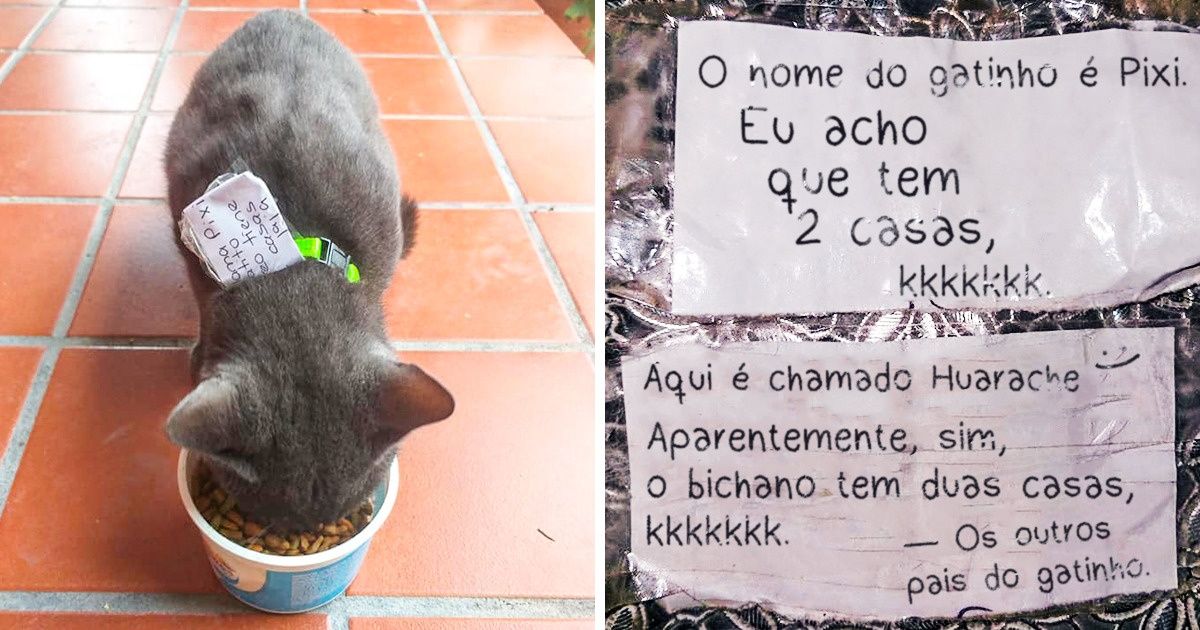 Pixi
tiene
casas
jaja
O nome do gatinho é Pixi.
Eu acho
que tem
2 casas,
kkkkkkk.
Aqui é chamado Huarache
Aparentemente, sim,
o bichano tem duas casas,
kkkkkkk.
— Os outros
pais do gatinho.